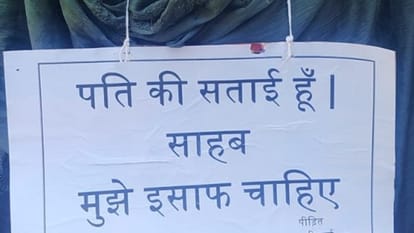 पति की सताई हूँ |
साहब
मुझे इसाफ चाहिए
पीड़ित